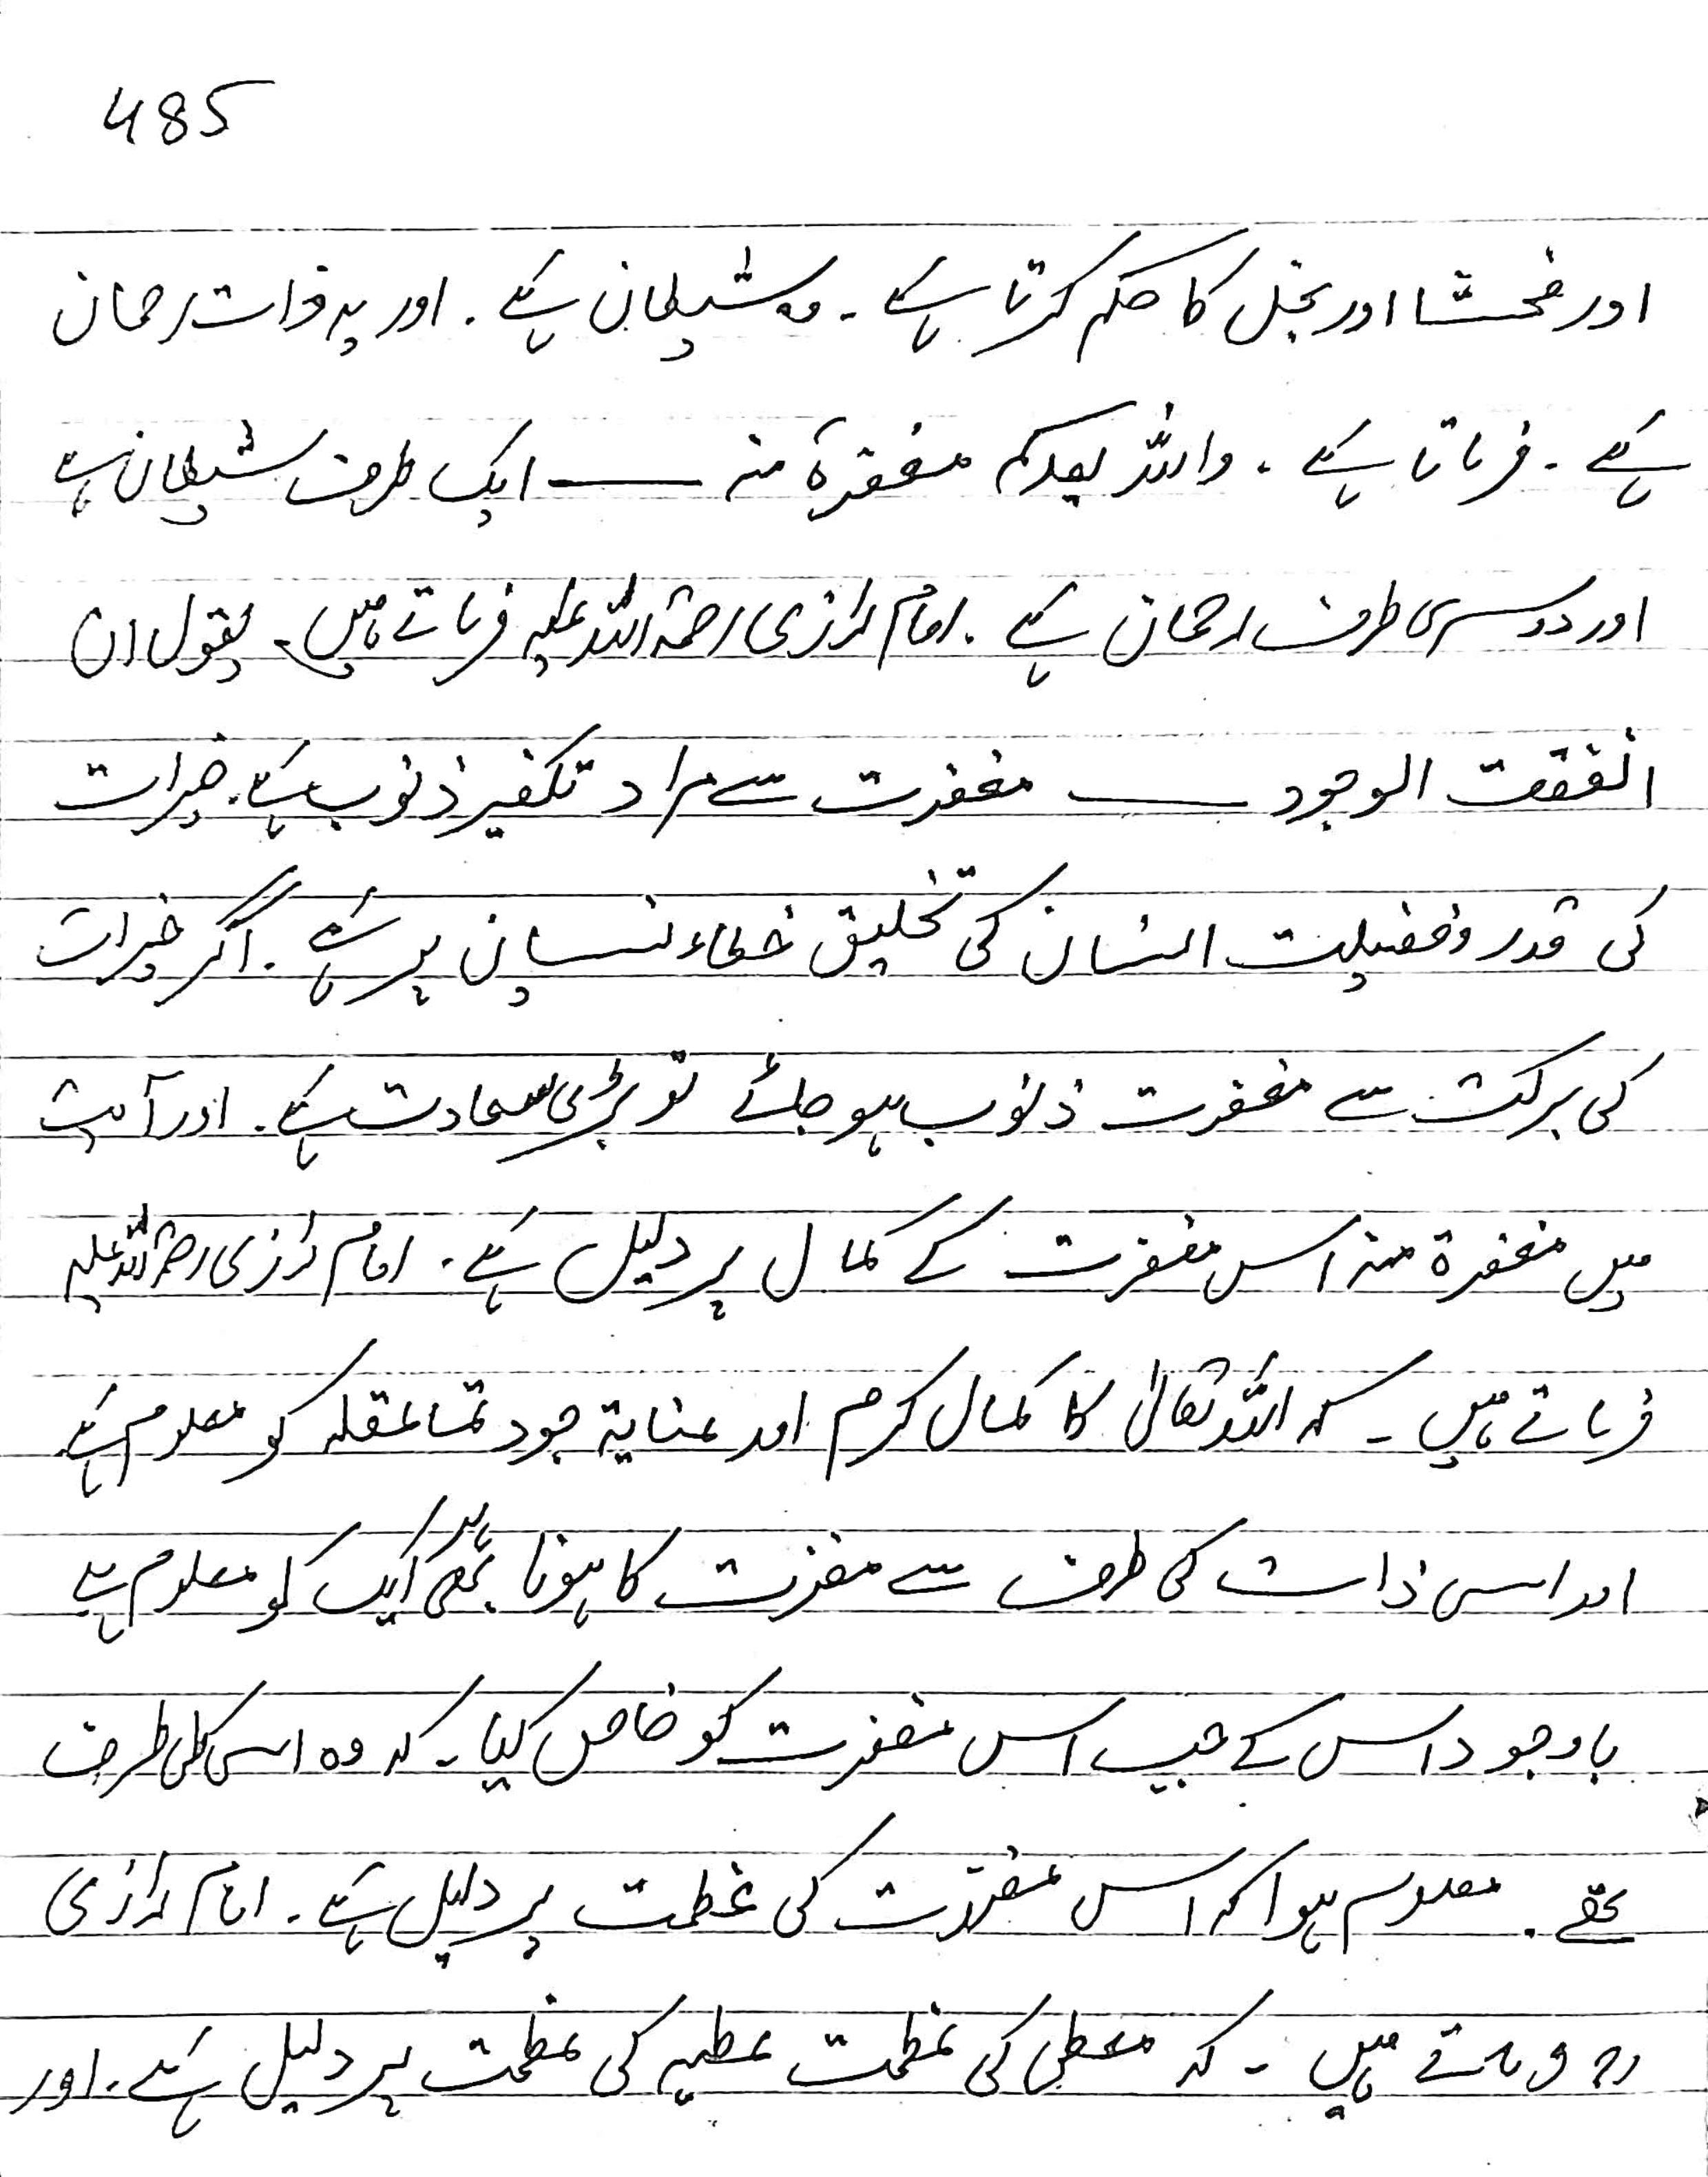 485
اور فحشا اور بخل کا حکم کرتا ہے ۔ وہ شیطان ہے ۔ اور یہ ذات رحمان
ہے ۔ فرماتا ہے ۔ واللہ یعدکم مغفرۃ منہ — ایک طرف شیطان ہے
اور دوسری طرف رحمان ہے ۔ امام رازی رحمۃ اللہ علیہ فرماتے ہیں ۔ یقول ان
انفقت الوجود — مغفرت سے مراد تکفیر ذنوب ہے ۔ خیرات
کی قدر و فضیلت انسان کی تخلیق خطاء نسیان پر ہے ۔ اگر خیرات
کی برکت سے مغفرت ذنوب ہو جائے تو بڑی سعادت ہے ۔ اور آیت
میں مغفرۃ منہ اس مغفرت کے کمال پر دلیل ہے ۔ امام رازی رحمۃ اللہ علیہ
فرماتے ہیں ۔ کہ اللہ تعالیٰ کا کمال کرم اور عنایۃ جود تما عقلہ کو معلوم ہے
اور اسی ذات کی طرف سے مغفرت کا ہونا بھی ہر ایک کو معلوم ہے
باوجود اس کے جب اس مغفرت کو خاص کیا ۔ کہ وہ اسی کی طرف
ہے ۔ معلوم ہوا کہ اس مغفرت کی عظمت پر دلیل ہے ۔ امام رازی
رح فرماتے ہیں ۔ کہ معطی کی عظمت عطیہ کی عظمت پر دلیل ہے ۔ اور